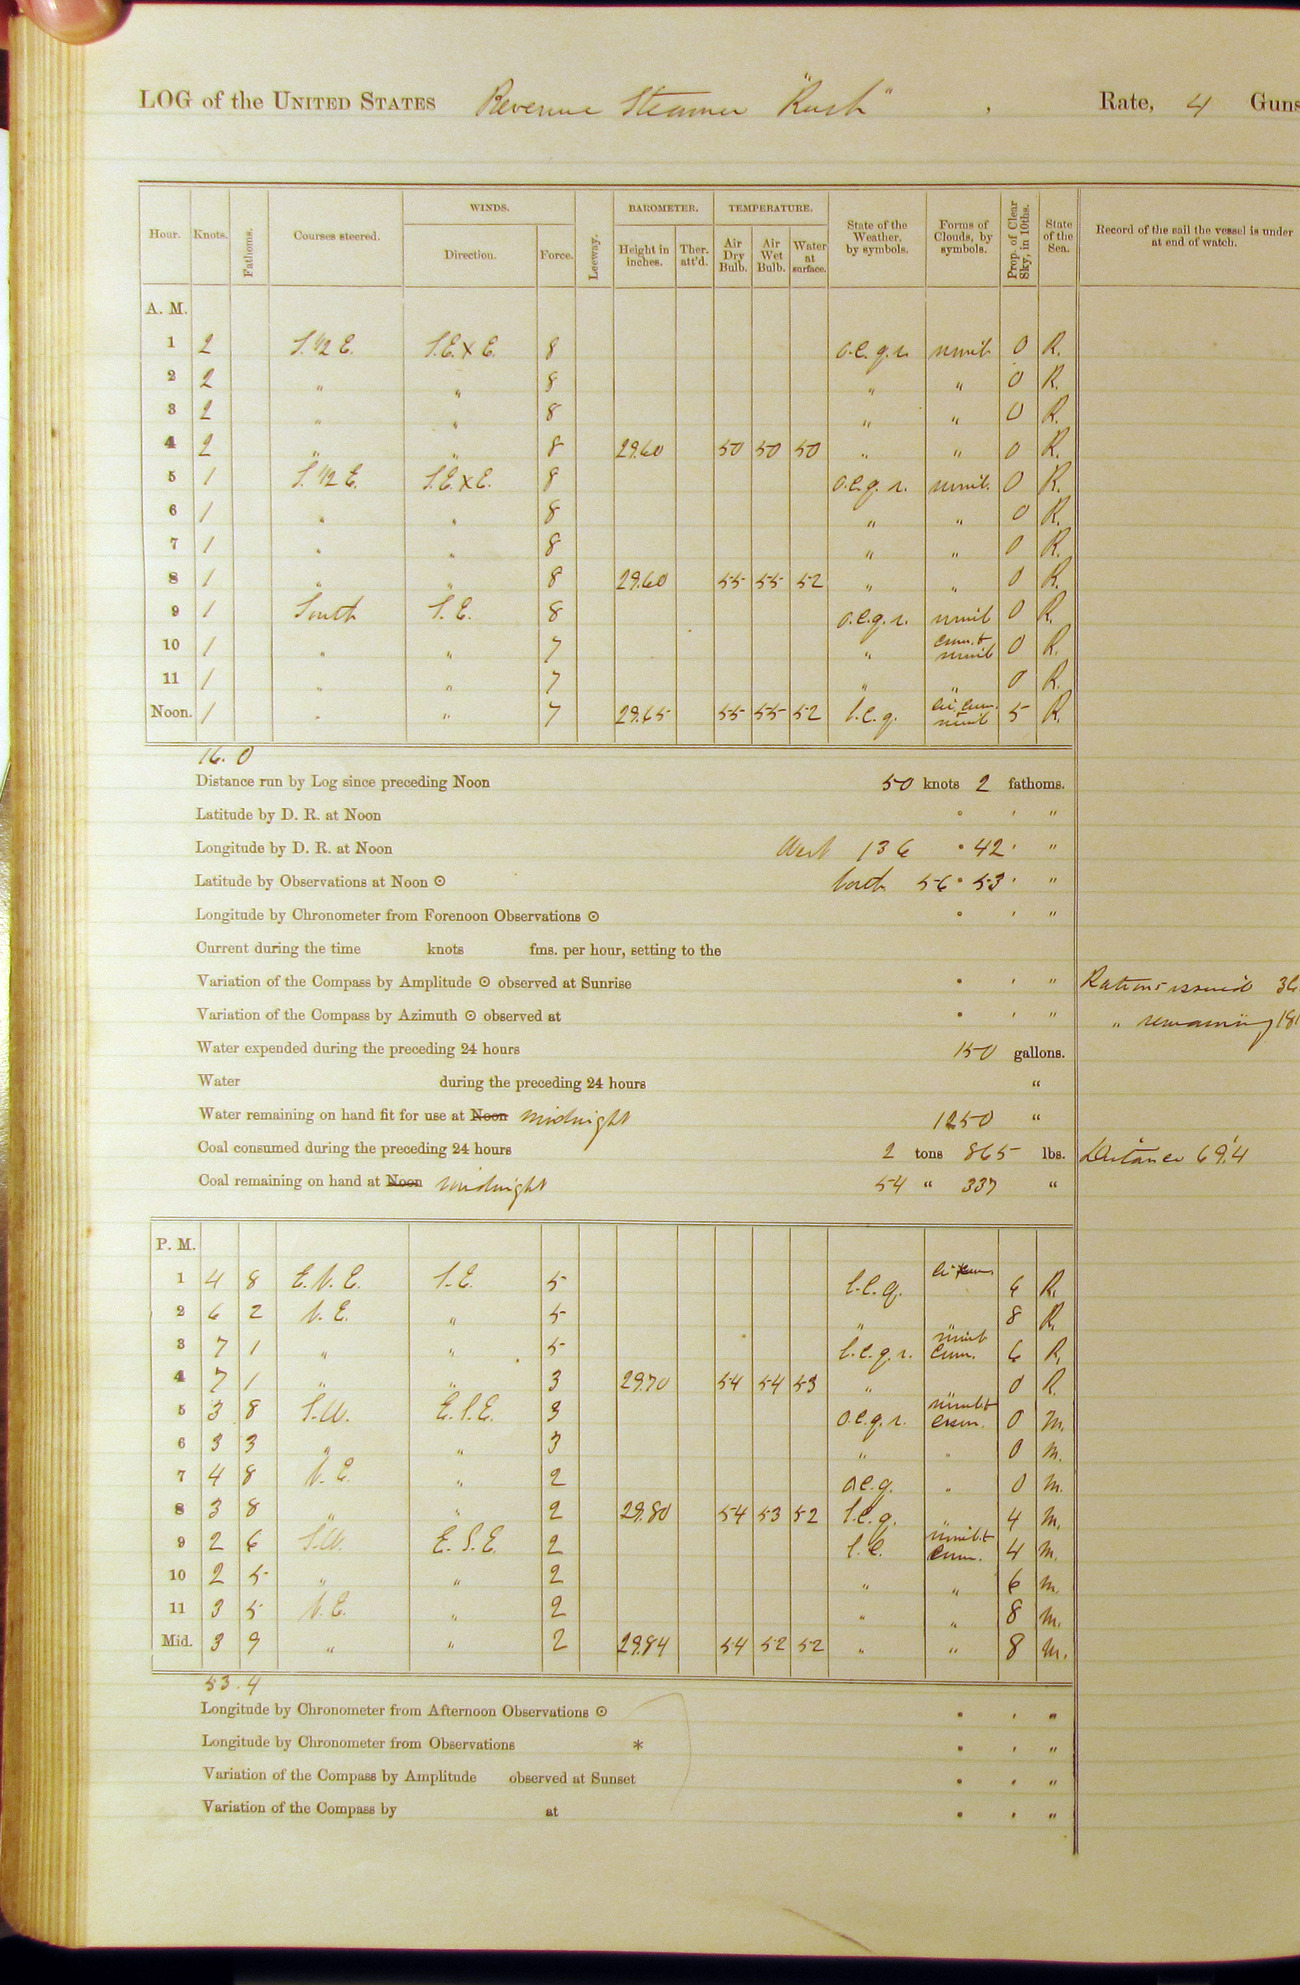 LOG of the UNITED STATES Revenue Steamer "Rush", Rate, 4 Guns
WINDS. BAROMETER. TEMPERATURE.
Hour. Knots. Fathoms. Courses steered. Direction. Force. Leeway. Height in inches. Ther. att'd. Air Dry Bulb. Air Wet Bulb. Water at surface. State of the Weather, by symbols. Forms of Clouds, by symbols. Prop. of Clear Sky, in 10ths. State of the Sea. Record of the sail the vessel is under at end of watch.
A. M.
1 2 S. 1/2 E. S.E. x E. 8 o.c.q.r. nimb 0 R.
2 2 " " 8 " " 0 R.
3 2 " " 8 " " 0 R.
4 2 " " 8 29.60 50 50 50 " " 0 R.
5 1 S. 1/2 E. S.E. x E. 8 o.c.q.r. nimb. 0 R.
6 1 " " 8 " " 0 R.
7 1 " " 8 " " 0 R.
8 1 " " 8 29.60 55 55 52 " " 0 R.
9 1 South S.E. 8 o.c.q.r. nimb 0 R.
10 1 " " 7 " cum. & nimb 0 R.
11 1 " " 7 " " 0 R.
Noon. 1 " " 7 29.65 55 55 52 b.c.q. ci. cum. nimb 5 R.
16. 0
Distance run by Log since preceding Noon 50 knots 2 fathoms.
Latitude by D. R. at Noon ° ' "
Longitude by D. R. at Noon West 136 ° 42 ' "
Latitude by Observations at Noon ☉ North 56 ° 53 ' "
Longitude by Chronometer from Forenoon Observations ☉ ° ' "
Current during the time knots fms. per hour, setting to the
Variation of the Compass by Amplitude ☉ observed at Sunrise ° ' " Rations issued 36
Variation of the Compass by Azimuth ☉ observed at ° ' " " remaining 181
Water expended during the preceding 24 hours 150 gallons.
Water during the preceding 24 hours "
Water remaining on hand fit for use at Noon midnight 1250 "
Coal consumed during the preceding 24 hours 2 tons 865 lbs. Distance 69.4
Coal remaining on hand at Noon midnight 54 " 337 "
P. M.
1 4 8 E.N.E. S.E. 5 b.c.q. ci cum 6 R.
2 6 2 N.E. " 5 " " 8 R.
3 7 1 " " 5 b.c.q.r. nimb cum. 6 R.
4 7 1 " " 3 29.70 54 54 53 " 0 R.
5 3 8 S.W. E.S.E. 3 o.c.q.r. nimb & cum. 0 M.
6 3 3 " " 3 " " 0 M.
7 4 8 N.E. " 2 o.c.q. " 0 M.
8 3 8 " " 2 29.80 54 53 52 b.c.q. " 4 M.
9 2 6 S.W. E.S.E. 2 b.c. nimb. & cum. 4 M.
10 2 5 " " 2 " " 6 M.
11 3 5 N.E. " 2 " " 8 M.
Mid. 3 9 " " 2 29.84 54 52 52 " " 8 M.
53. 4
Longitude by Chronometer from Afternoon Observations ☉ ° ' "
Longitude by Chronometer from Observations * ° ' "
Variation of the Compass by Amplitude observed at Sunset ° ' "
Variation of the Compass by at ° ' "